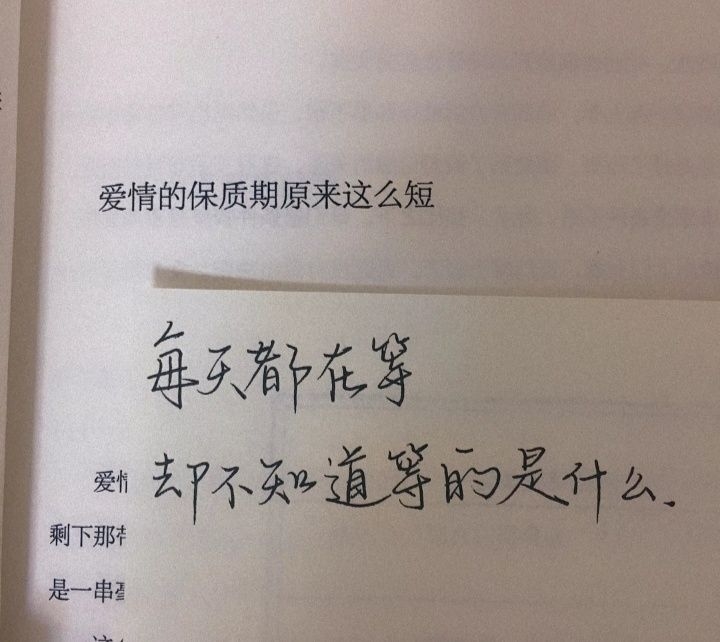 爱情的保质期原来这么短
每天都在等
却不知道等的是什么.
爱情
剩下那
是一串